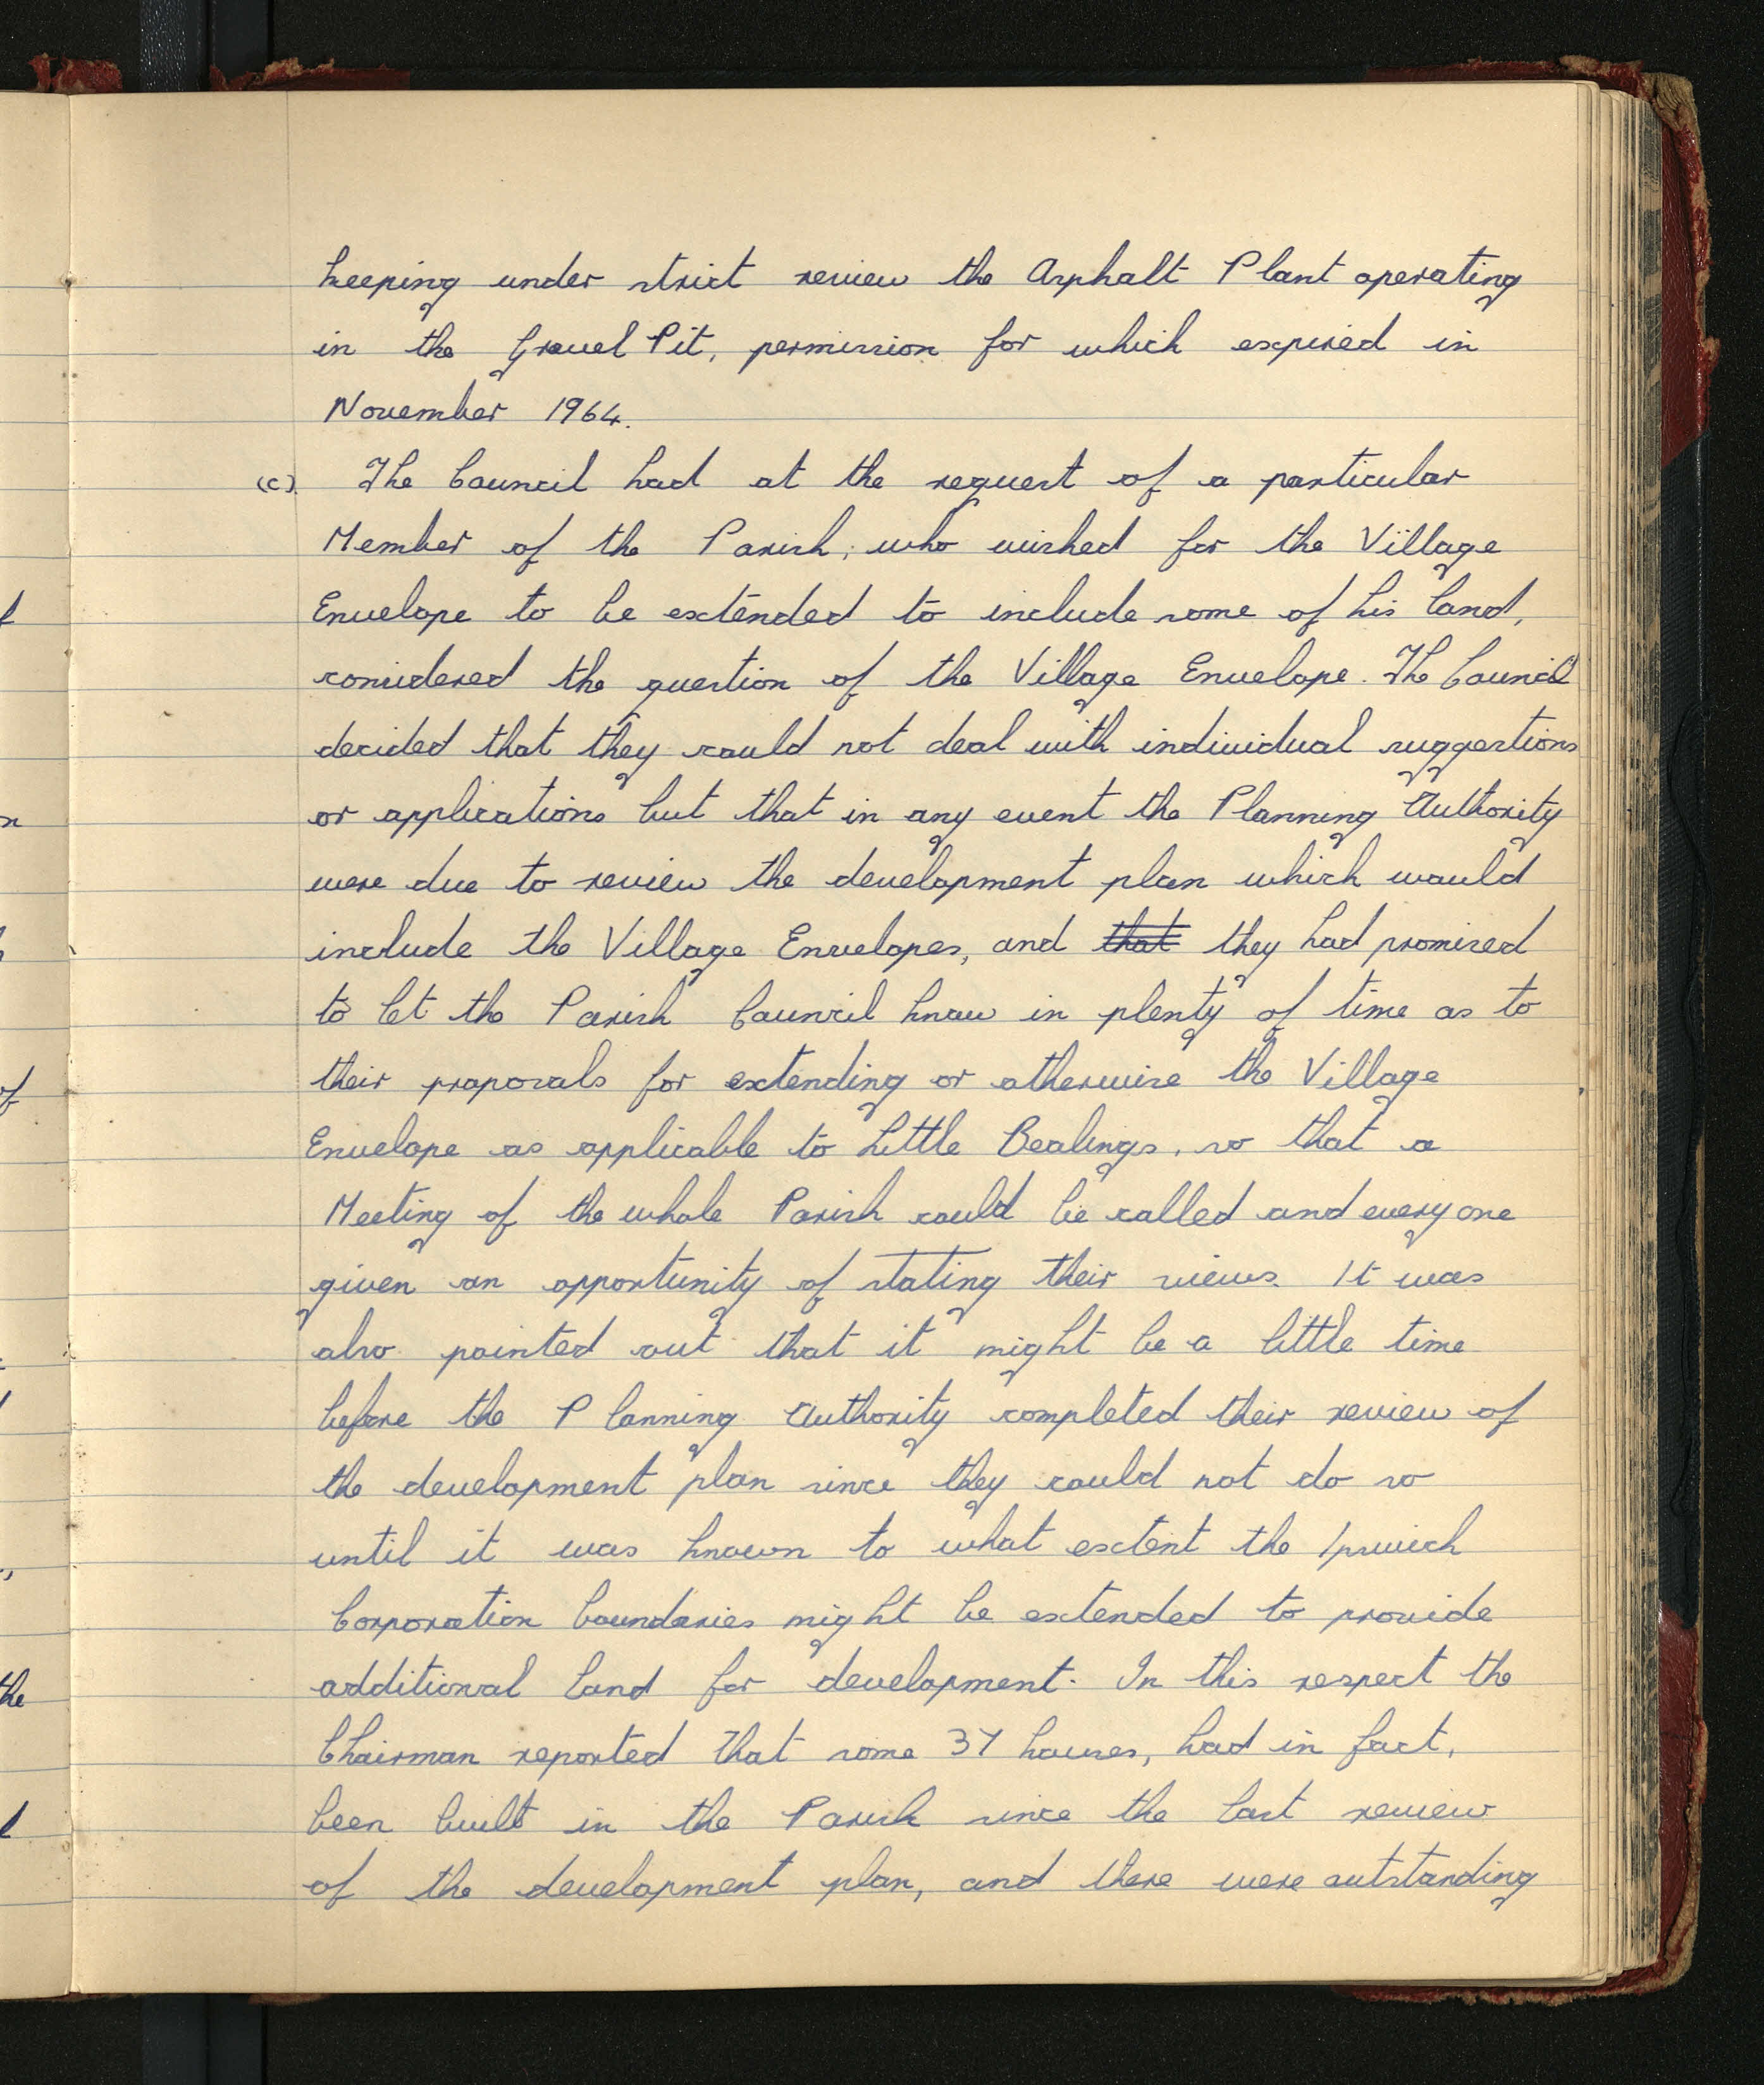 keeping under strict review the Asphalt Plant operating
in the Gravel Pit, permission for which expired in
November 1964.
(c). The Council had at the request of a particular
Member of the Parish, who wished for the Village
Envelope to be extended to include some of his land,
considered the question of the Village Envelope. The Council
decided that they could not deal with individual suggestions
or applications but that in any event the Planning Authority
were due to review the development plan which would
include the Village Envelopes, and that they had promised
to let the Parish Council know in plenty of time as to
their proposals for extending or otherwise the Village
Envelope as applicable to Little Bealings, so that a
Meeting of the whole Parish could be called and every one
given an opportunity of stating their views. It was
also pointed out that it might be a little time
before the Planning Authority completed their review of
the development plan since they could not do so
until it was known to what extent the Ipswich
Corporation boundaries might be extended to provide
additional land for development. In this respect the
Chairman reported that some 37 houses, had in fact,
been built in the Parish since the last review
of the development plan, and there were outstanding
of
the